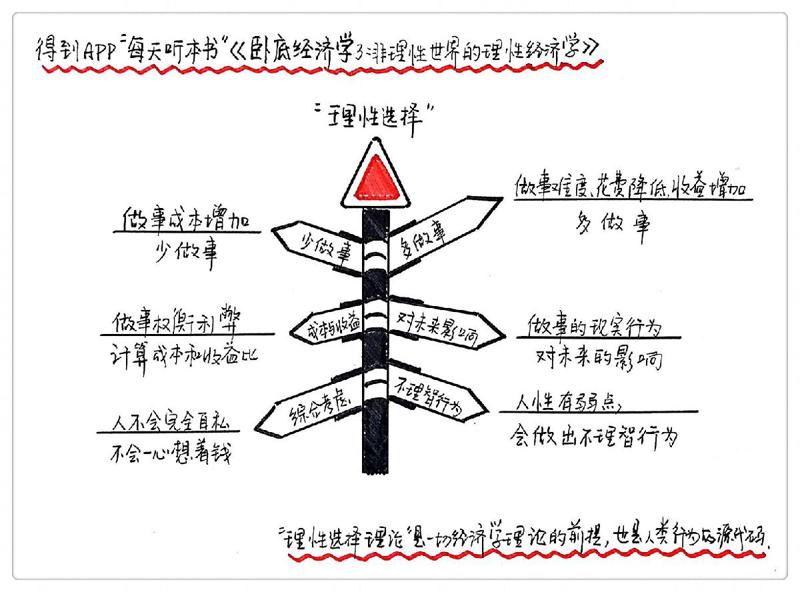 得到APP“每天听本书”《卧底经济学3:非理性世界的理性经济学》
“理性选择”
做事成本增加
少做事
少做事
多做事
做事难度、花费降低,收益增加
多做事
做事权衡利弊
计算成本和收益比
成本与收益
对未来影响
做事的现实行为
对未来的影响
人不会完全自私
不会一心想着钱
综合考虑
不理智行为
人性有弱点,
会做出不理智行为
“理性选择理论”是一切经济学理论的前提,也是人类行为的源代码.